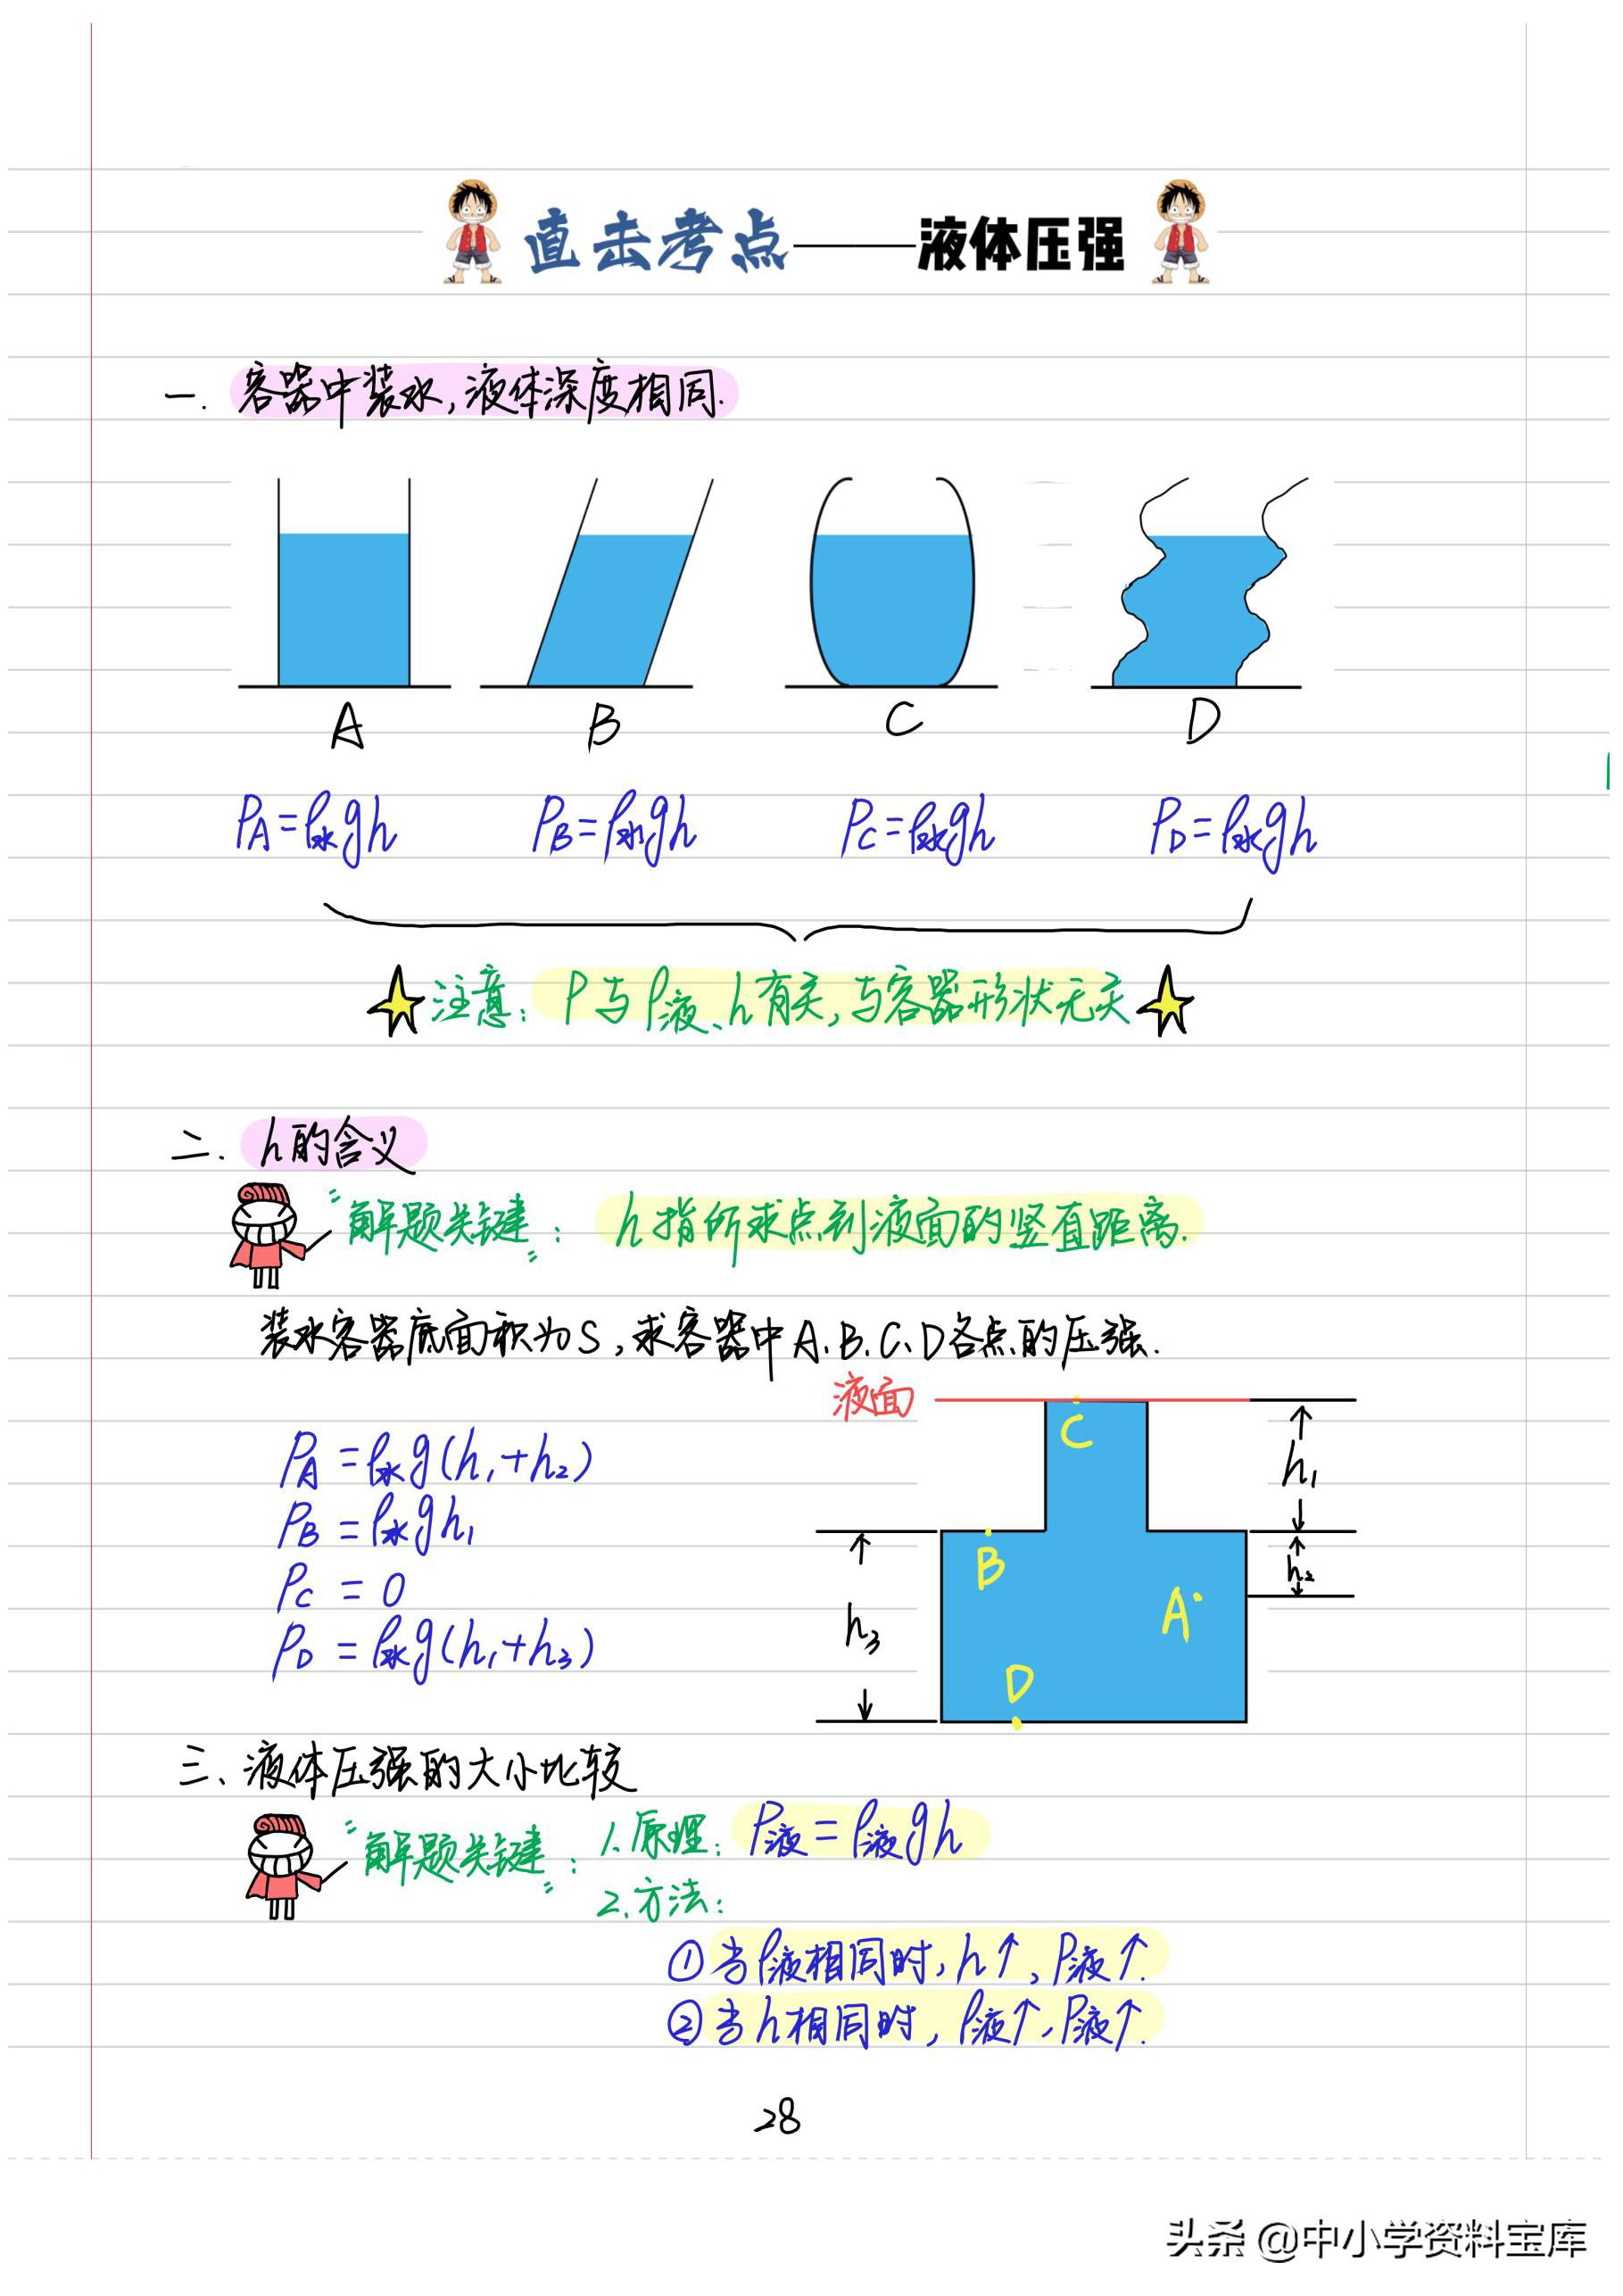 直击考点——液体压强
一. 容器中装水,液体深度相同.
A B C D
P_A=ρ水gh P_B=ρ水gh P_C=ρ水gh P_D=ρ水gh
注意: P与ρ液、h有关,与容器形状无关
二. h的含义
"解题关键": h指所求点到液面的竖直距离.
装水容器底面积为S,求容器中A、B、C、D各点的压强.
液面
C
h₁
P_A=ρ水g(h₁+h₂)
P_B=ρ水gh₁
P_C=0
P_D=ρ水g(h₁+h₃)
B
h₂
A
h₃
D
三、液体压强的大小比较
"解题关键": 1.原理: P液=ρ液gh
2.方法:
①当ρ液相同时,h↑、P液↑.
②当h相同时,ρ液↑、P液↑.
28
头条 @中小学资料宝库